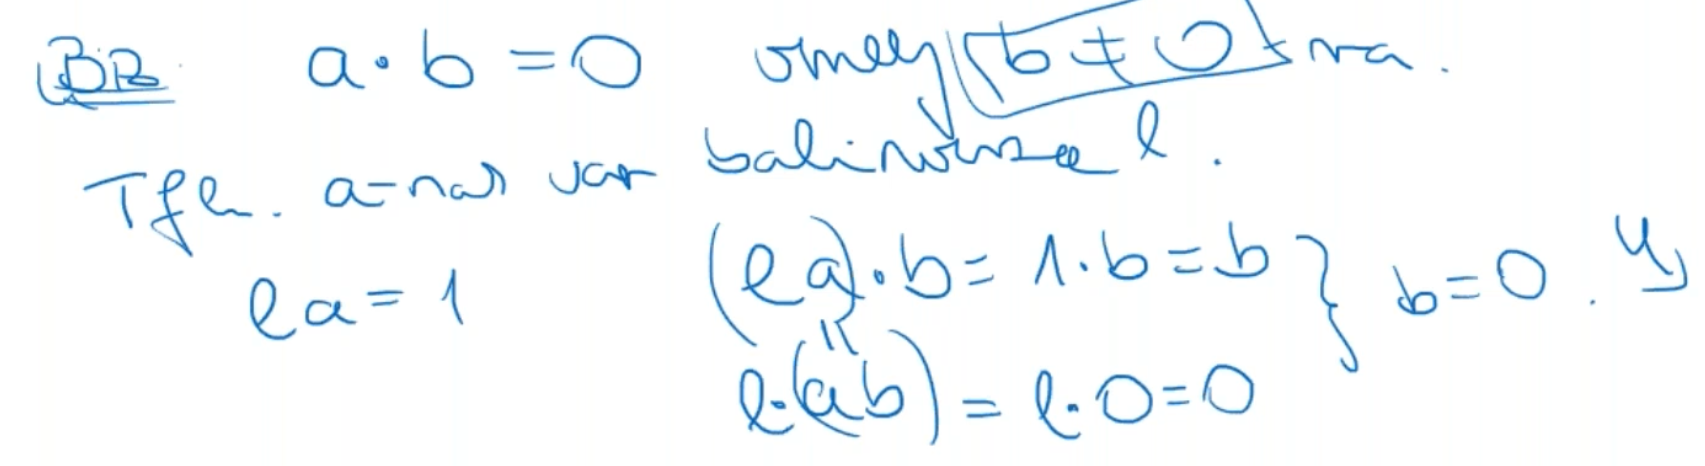 Biz. a·b = 0 amely b ≠ 0 -ra.
Tfh. a-nak van balinverze l.
la = 1 (la)·b = 1·b = b } b = 0. ↯
l·(ab) = l·0 = 0